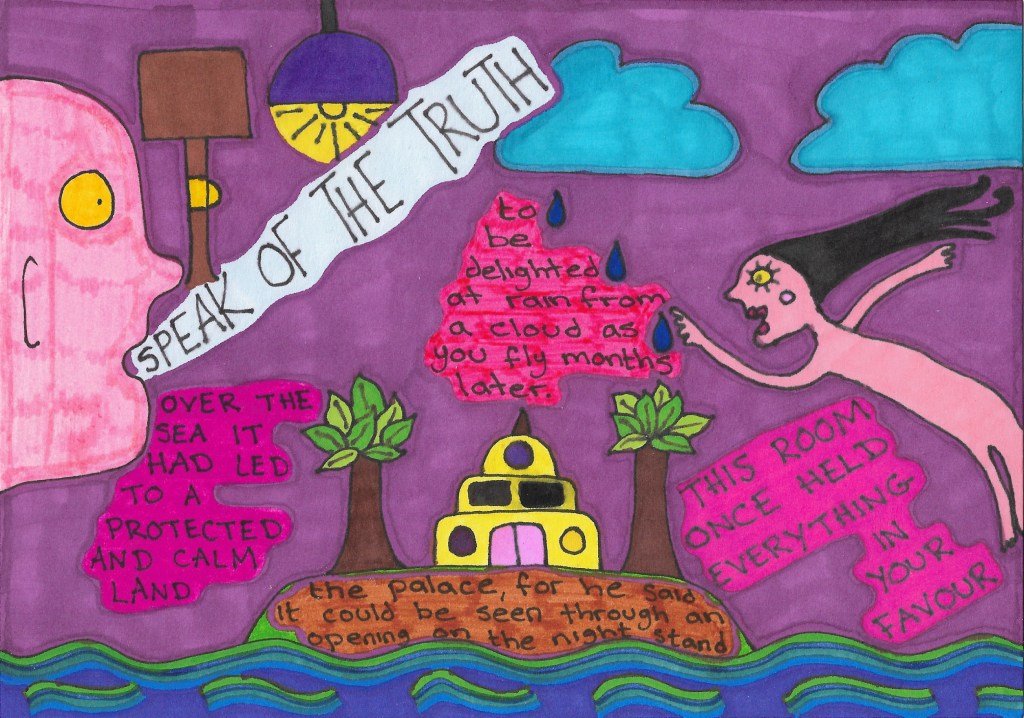 SPEAK OF THE TRUTH
to
be
delighted
at rain from
a cloud as
you fly months
later.
OVER THE
SEA IT
HAD LED
TO A
PROTECTED
AND CALM
LAND
THIS ROOM
ONCE HELD
EVERYTHING
IN
YOUR
FAVOUR
the palace, for he said,
it could be seen through an
opening on the night stand